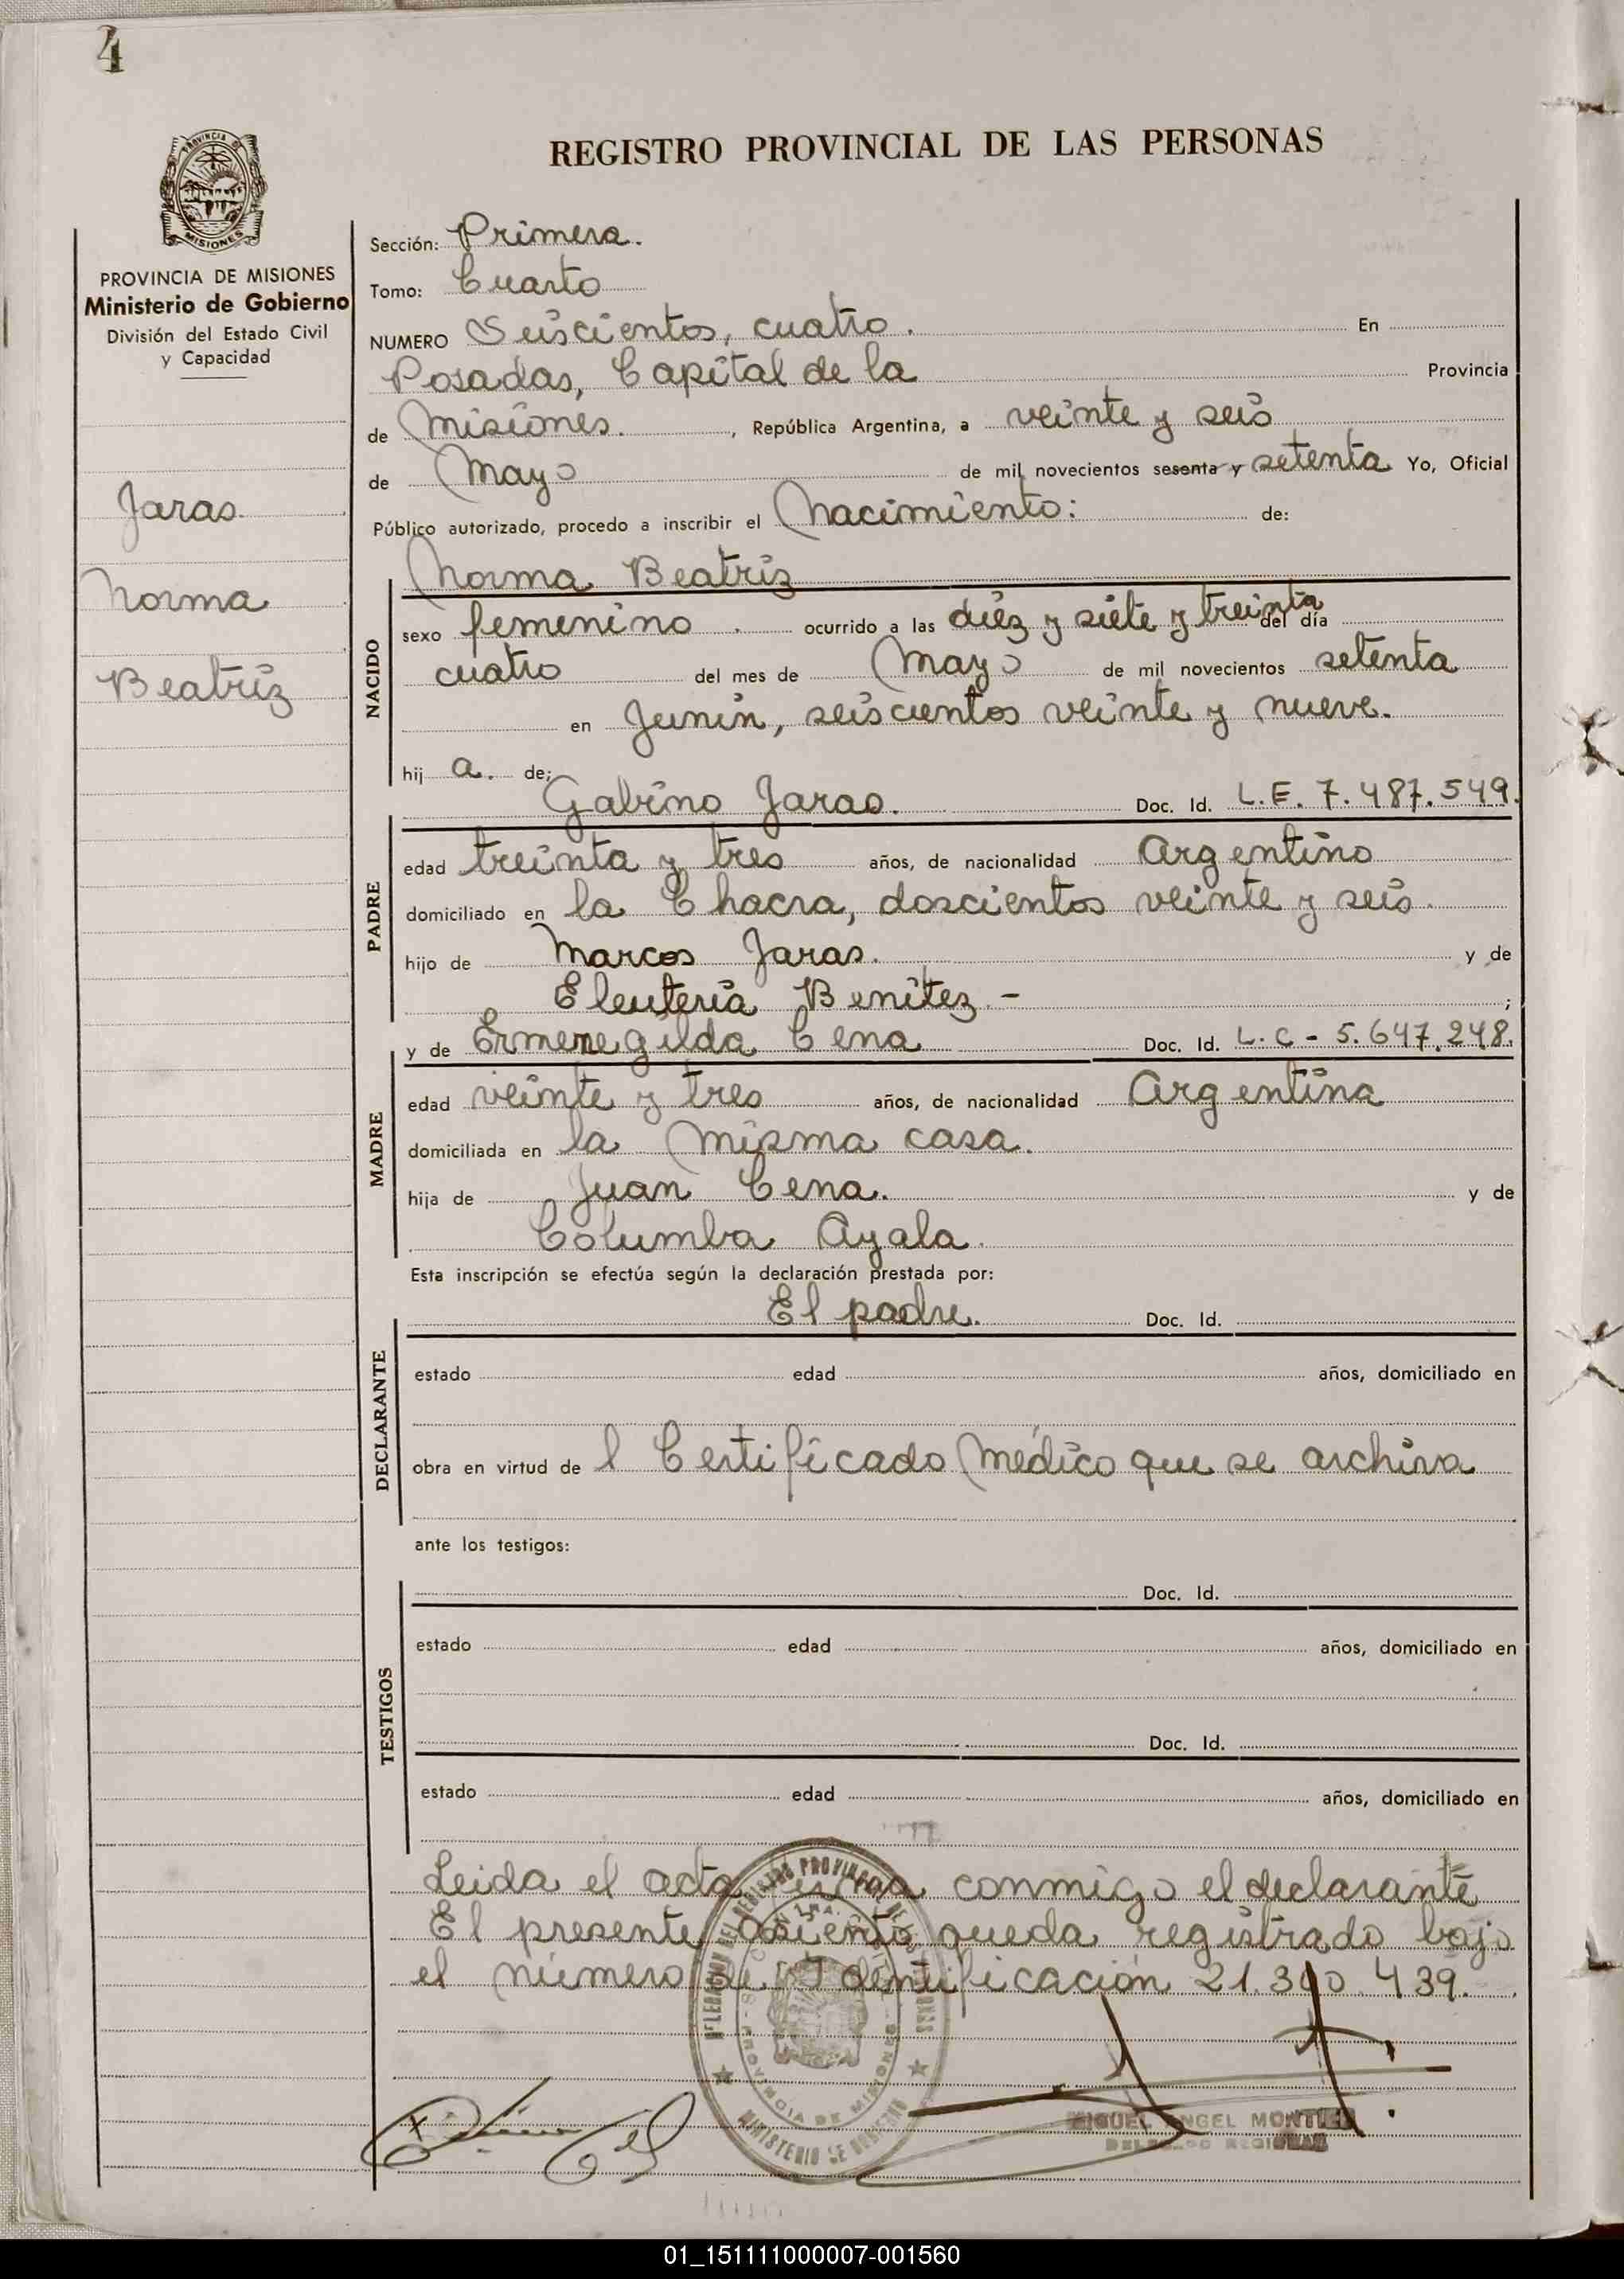 4
REGISTRO PROVINCIAL DE LAS PERSONAS
PROVINCIA DE
MISIONES
PROVINCIA DE MISIONES
Ministerio de Gobierno
División del Estado Civil
y Capacidad
Jaras.
Norma
Beatriz
Sección: Primera.
Tomo: Cuarto
NUMERO Seiscientos, cuatro. En
Posadas, Capital de la Provincia
de Misiones. , República Argentina, a veinte y seis
de Mayo de mil novecientos sesenta y setenta Yo, Oficial
Público autorizado, procedo a inscribir el Nacimiento: de:
Norma Beatriz
NACIDO
sexo femenino . ocurrido a las diéz y siete y treinta del día
cuatro del mes de Mayo de mil novecientos setenta
en Junín, seiscientos veinte y nueve.
hij a. de;
Gabino Jaras. Doc. Id. L.E. 7.487.549.
PADRE
edad treinta y tres años, de nacionalidad Argentino
domiciliado en la Chacra, doscientos veinte y seis.
hijo de Marcos Jaras. y de
Eleuteria Benitez - ;
y de Ermenegilda Cena Doc. Id. L.C - 5.647.248.
MADRE
edad veinte y tres años, de nacionalidad Argentina
domiciliada en la misma casa.
hija de Juan Cena. y de
Columba Ayala.
Esta inscripción se efectúa según la declaración prestada por:
El padre. Doc. Id.
DECLARANTE
estado edad años, domiciliado en
obra en virtud de l Certificado Médico que se archiva
ante los testigos:
Doc. Id.
TESTIGOS
estado edad años, domiciliado en
Doc. Id.
estado edad años, domiciliado en
Leida el acta firma conmigo el declarante
El presente asiento queda registrado bajo
el número de Identificación 21.300.439.
PROVINCIA DE MISIONES
MINISTERIO DE GOBIERNO
MIGUEL ANGEL MONTIEL
DELEGADO REGIONAL
01_151111000007-001560